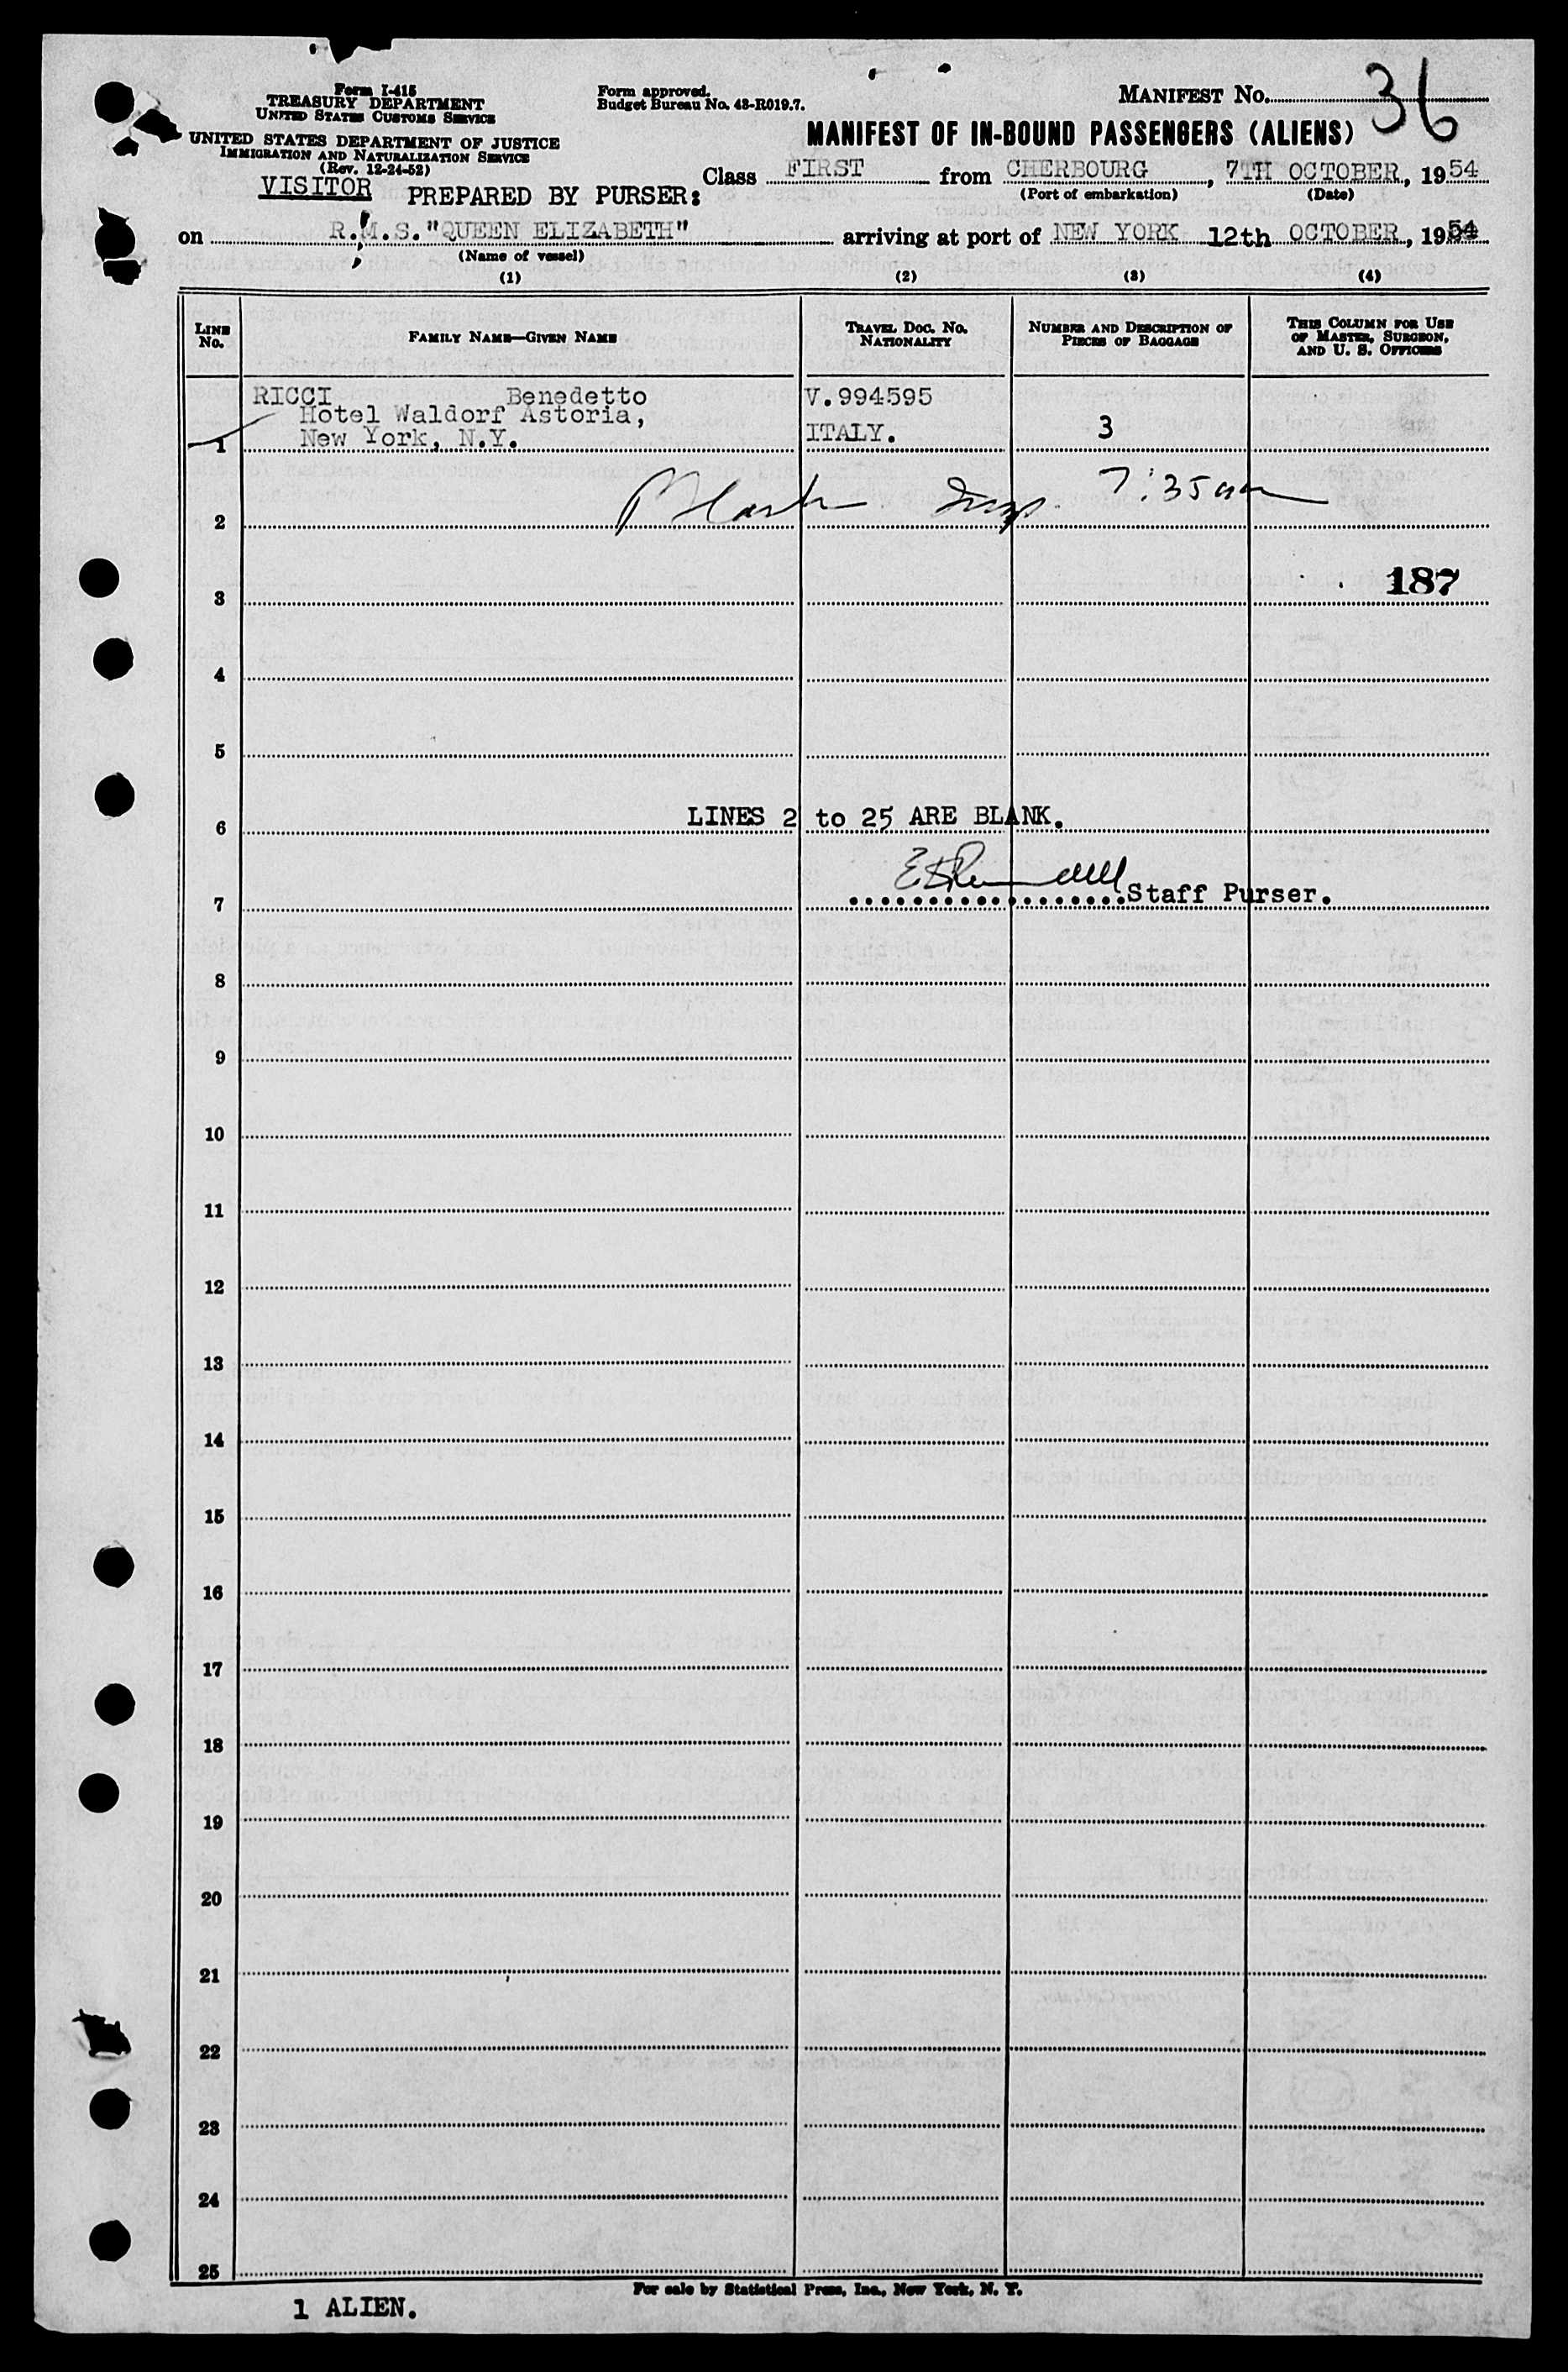 Form I-418
TREASURY DEPARTMENT
UNITED STATES CUSTOMS SERVICE
UNITED STATES DEPARTMENT OF JUSTICE
IMMIGRATION AND NATURALIZATION SERVICE
(Rev. 12-24-52)
Form approved.
Budget Bureau No. 43-R019.7.
MANIFEST No. 36
MANIFEST OF IN-BOUND PASSENGERS (ALIENS)
VISITOR PREPARED BY PURSER: Class FIRST from CHERBOURG, 7TH OCTOBER, 1954
(Port of embarkation) (Date)
on R.M.S. "QUEEN ELIZABETH" arriving at port of NEW YORK 12th OCTOBER, 1954
(Name of vessel)
(1) (2) (3) (4)
LINE No.
FAMILY NAME—GIVEN NAME
TRAVEL DOC. No. NATIONALITY
NUMBER AND DESCRIPTION OF PIECES OF BAGGAGE
THIS COLUMN FOR USE OF MASTER, SURGEON, AND U. S. OFFICERS
RICCI Benedetto V.994595
Hotel Waldorf Astoria,
1 New York, N.Y. ITALY. 3
2 Insp. 7:35am
3 187
4
5
6 LINES 2 to 25 ARE BLANK.
7 Staff Purser.
8
9
10
11
12
13
14
15
16
17
18
19
20
21
22
23
24
25
For sale by Statistical Press, Inc., New York, N. Y.
1 ALIEN.